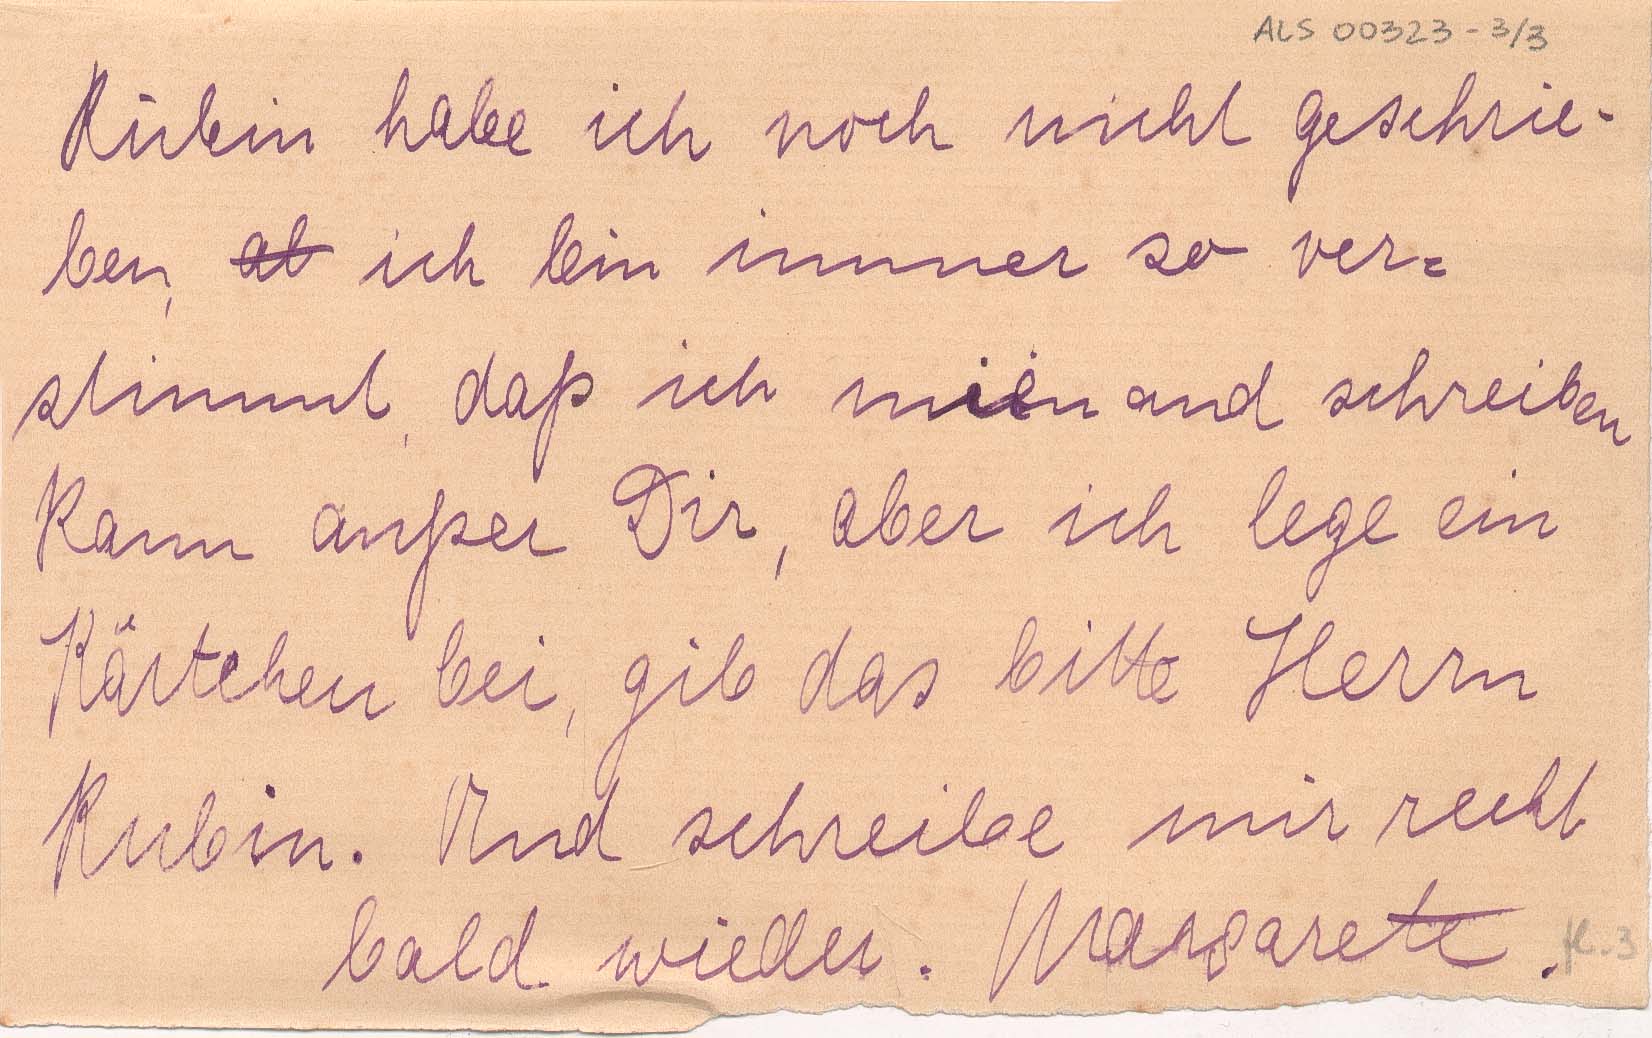 ALS 00323-3/3
Rubin habe ich noch nicht geschrie-
ben, ab ich bin immer so ver=
stimmt, daß ich niemand schreiben
kann außer Dir, aber ich lege ein
Kärtchen bei, gib das bitte Herrn
Rubin. Und schreibe mir recht
bald wieder. Margarete.